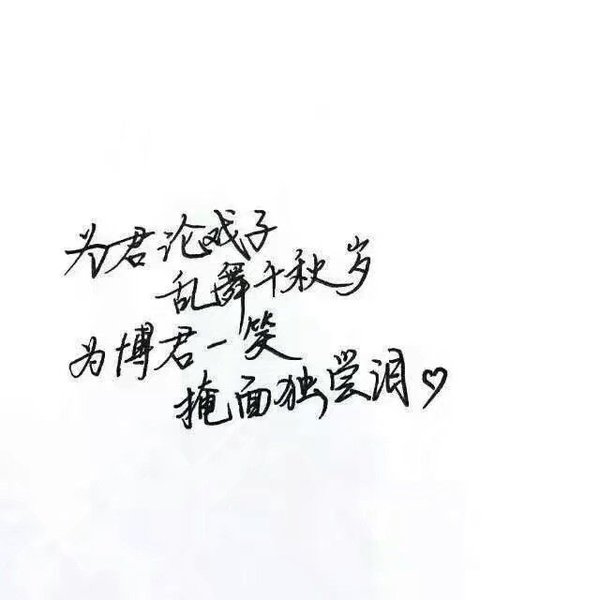 为君论戏子
乱舞千秋岁
为博君一笑
掩面独尝泪♡